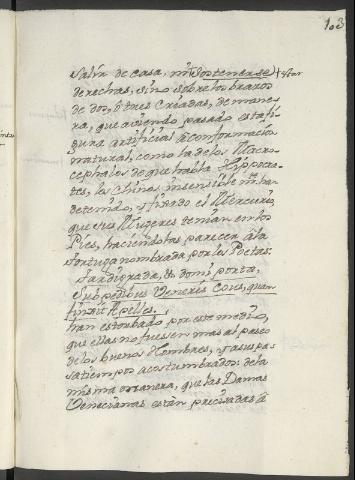 103
Salir de casa, ni Sostenerse + estar
derechas, sino sobre los brazos
de dos, ô tres Criadas, de mane
ra, que aviendo pasado esta fi
gura artificiâl â conformaciòn
natural, como la de los Macro
cephales de que habla Hippocra
tes, los Chinos insensiblemte. han
detenido, y fixado el Mercurio,
que sus Mugeres tenian en los
Pies, haciendolas parecer â la
Tortuga nombrada por los Poetas.
Tardigrada & domi porta,
Sub pedibus Veneris Cous, quam
finxit Apelles.
han estorbado por este medio,
que ellas no fuesen mas al paseo
de los buenos Hombres, y a sus pa
satiempos acostumbrados: de la
misma manera, que las Damas
Venecianas estàn precisadas â